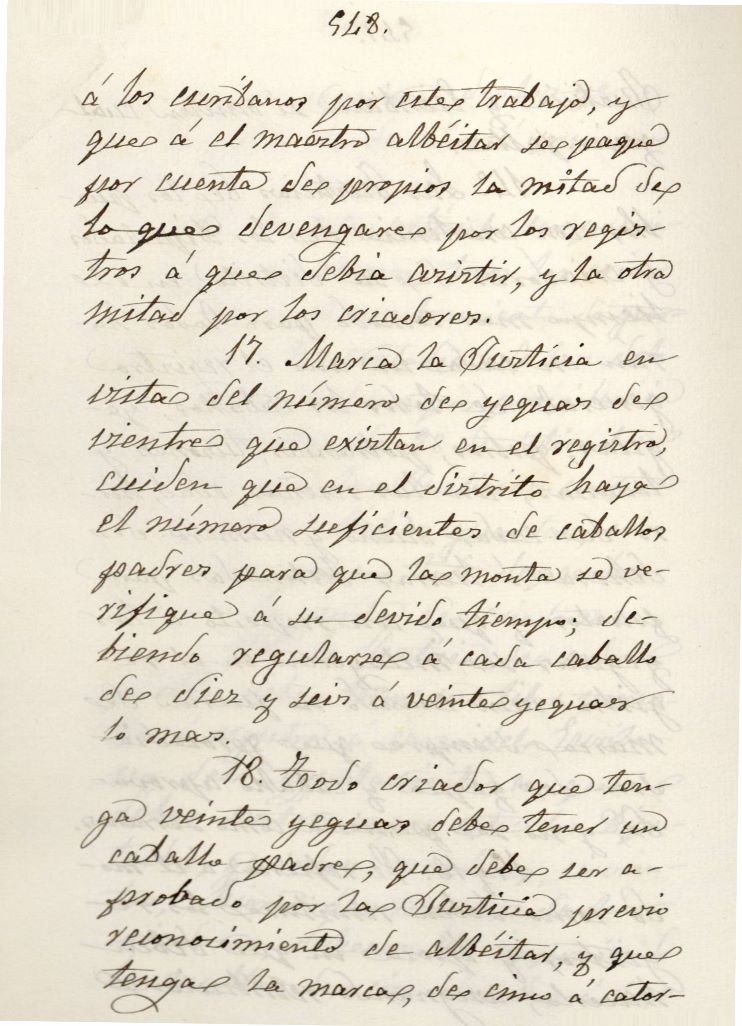 548.
á los escribanos por este trabajo, y
que á el maestro albéitar se pague
por cuenta de propios la mitad de
lo que devengare por los regis-
tros á que debia asistir, y la otra
mitad por los criadores.
17. Marca la Justicia en
vista del número de yeguas de
vientre que existan en el registro,
cuiden que en el distrito haya
el número suficientes de caballos
padres para que la monta se ve-
rifique á su devido tiempo; de-
biendo regularse á cada caballo
de diez y seis á veinte yeguas
lo mas.
18. Todo criador que ten-
ga veinte yeguas debe tener un
caballo padre, que debe ser a-
probado por la Justicia previo
reconocimiento de albéitar, y que
tenga la marca, de cinco á cator-